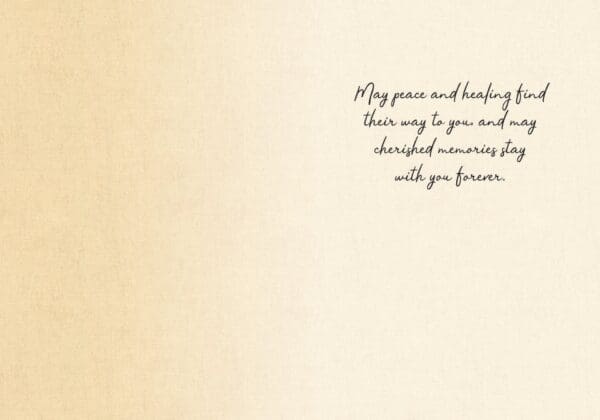 May peace and healing find
their way to you, and may
cherished memories stay
with you forever.